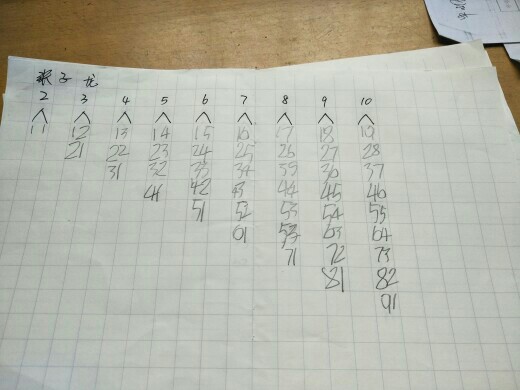 张子龙
2 3 4 5 6 7 8 9 10
11 12 13 14 15 16 17 18 19
21 22 23 24 25 26 27 28
31 32 33 34 35 36 37
41 42 43 44 45 46
51 52 53 54 55
61 53 63 64
71 72 73
81 82
91